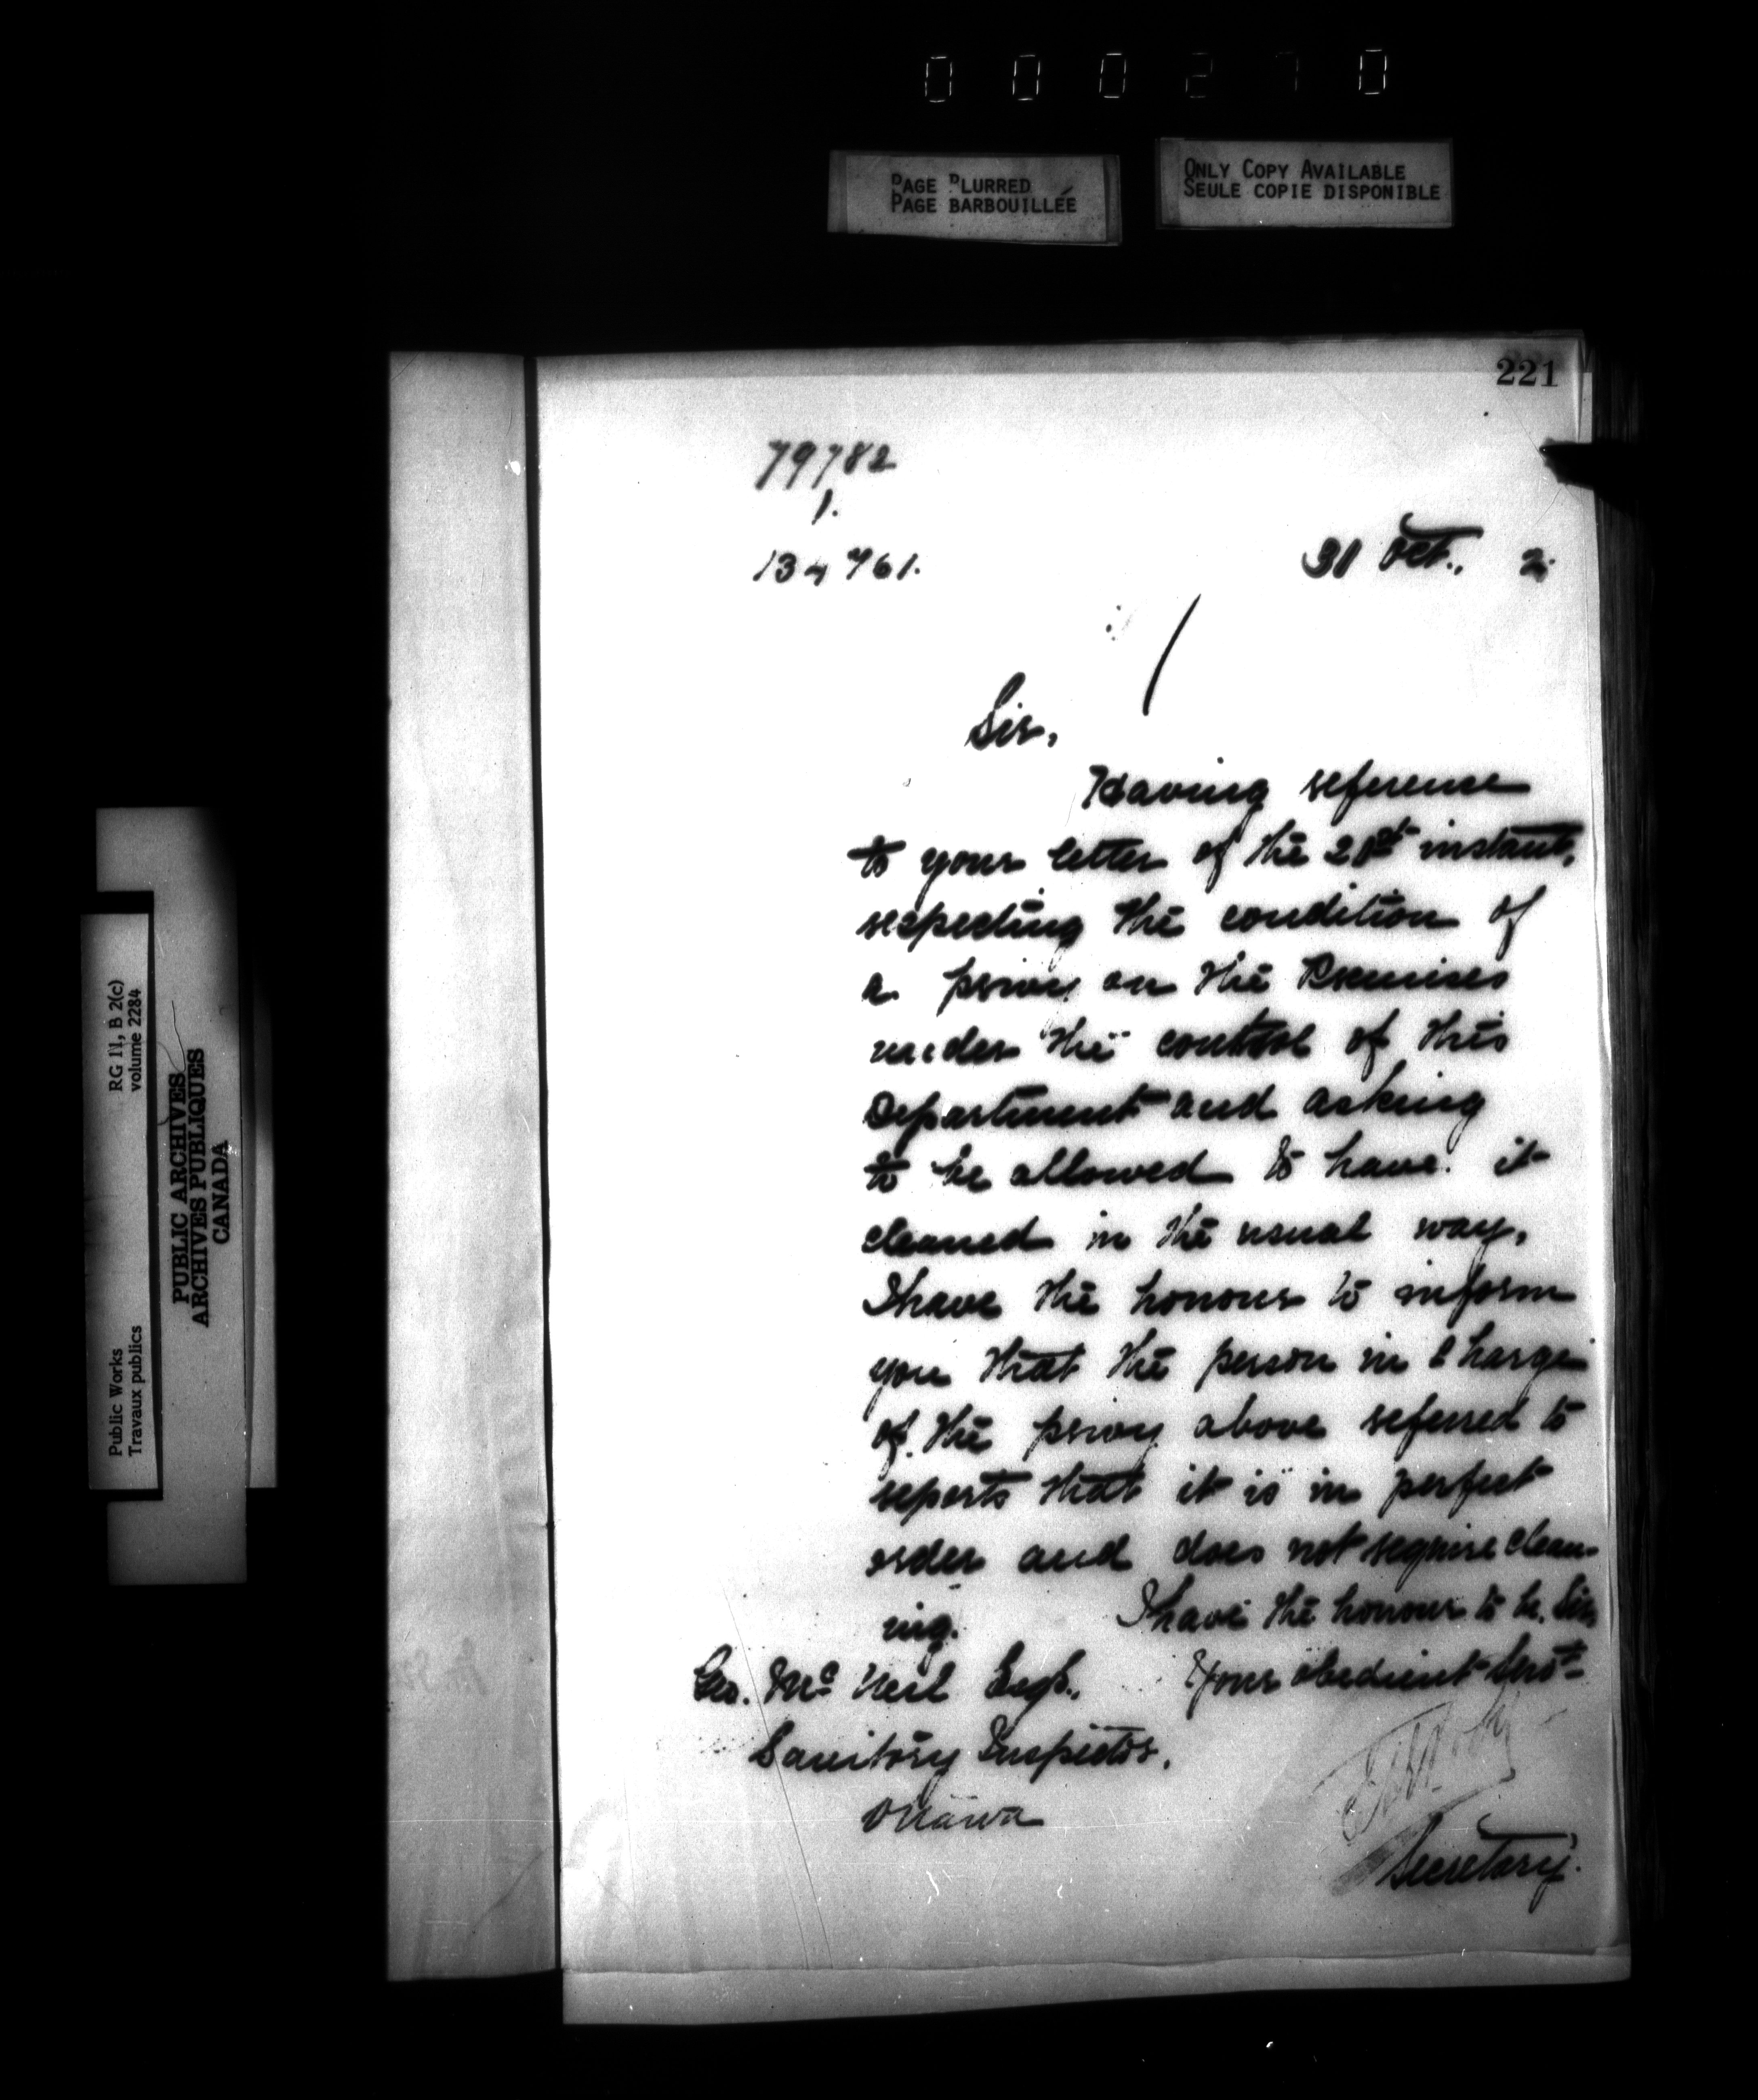 000270
PAGE BLURRED
PAGE BARBOUILLÉE
ONLY COPY AVAILABLE
SEULE COPIE DISPONIBLE
221
79782
1.
134761.
31 Oct., 2.
Sir,
Having reference
to your letter of the instant,
respecting the condition of
a privy on the Premises
under the control of this
Department and asking
to be allowed to have it
cleaned in the usual way,
I have the honour to inform
you that the person in charge
of the privy above referred to
reports that it is in perfect
order and does not require clean-
ing.
I have the honour to be, Sir,
Geo. McNeil Esq.,
Your obedient Servt
Sanitory Inspector.
Ottawa
Secretary.
Public Works
Travaux publics
RG 11, B 2(c)
volume 2284
PUBLIC ARCHIVES
ARCHIVES PUBLIQUES
CANADA